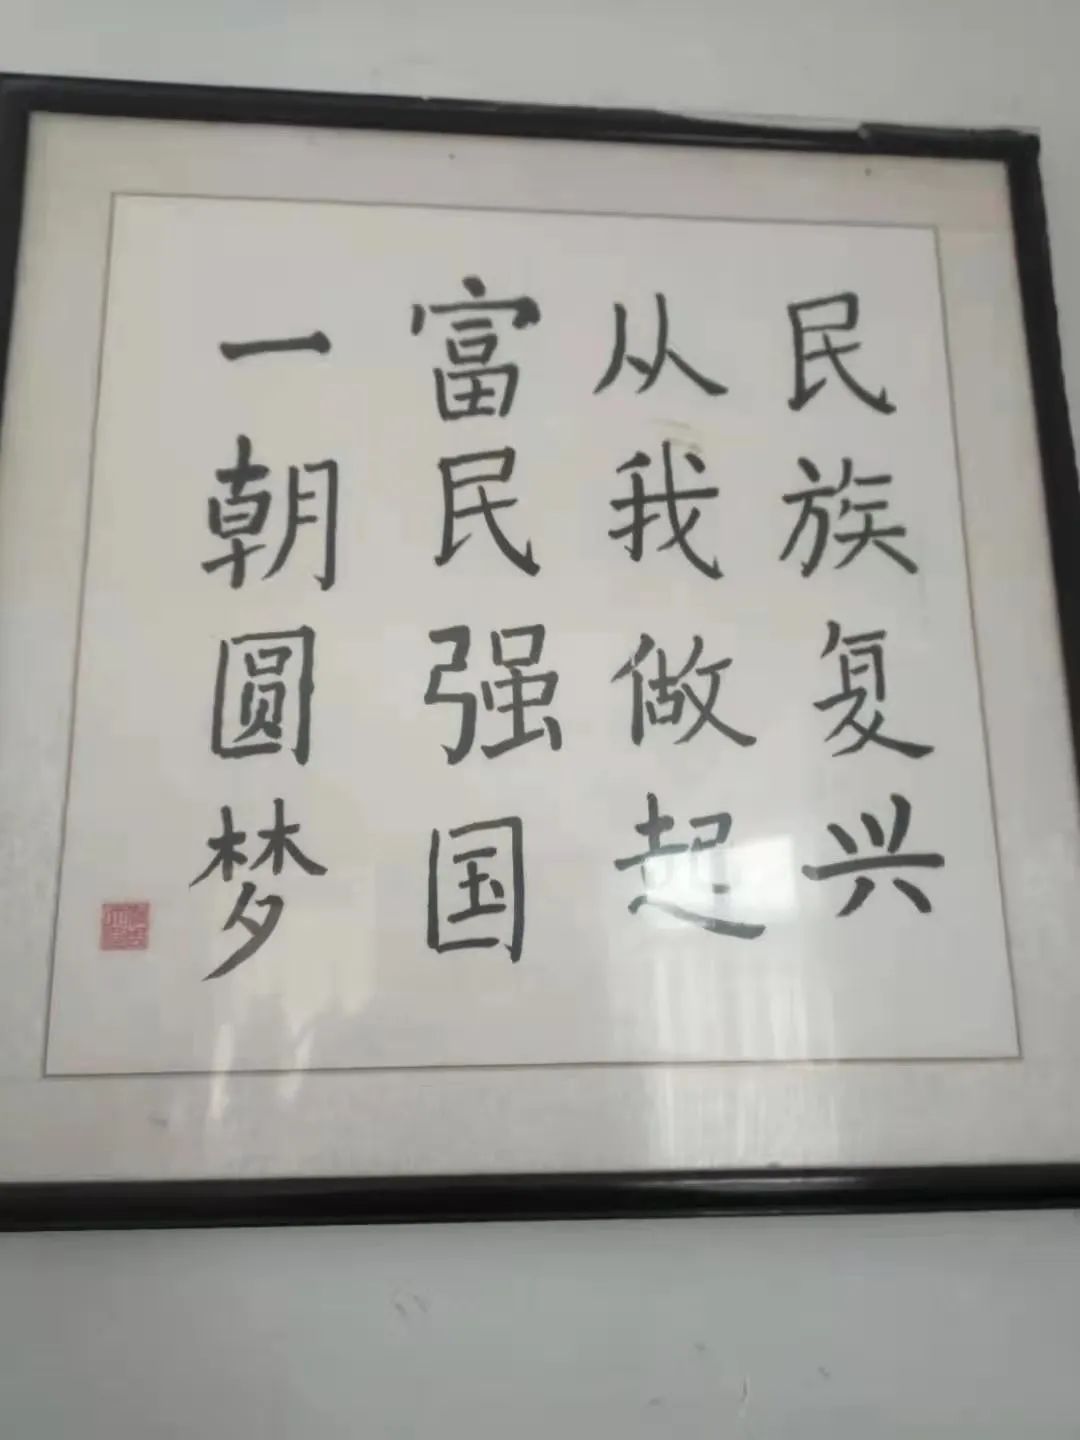 民族复兴
从我做起
富民强国
一朝圆梦